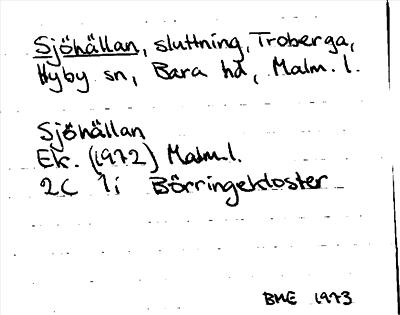 Sjöhällan, sluttning, Troberga,
Hyby sn, Bara hd, Malm. l.
Sjöhällan
Ek. (1972) Malm.l.
2C 1i Börringekloster
BME 1973